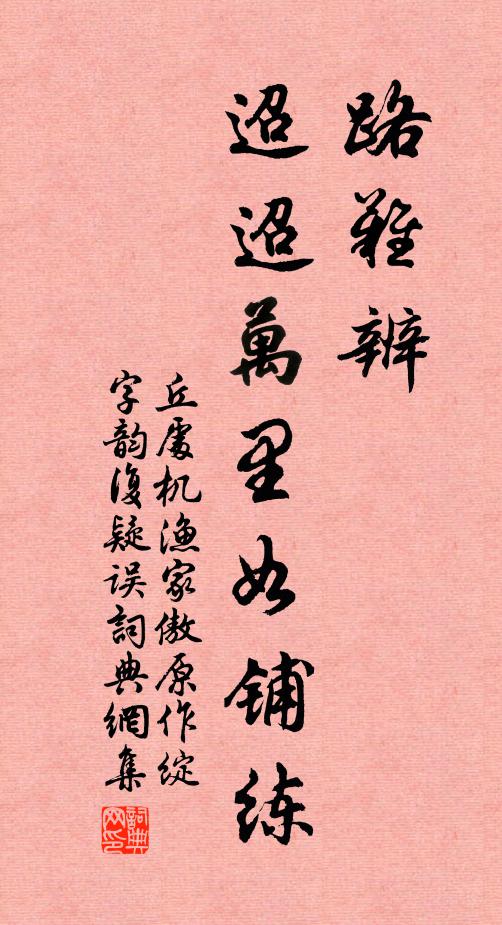 路難辨
迢迢萬里如鋪練
丘處机漁家傲原作綻
字韵復疑误詞典網集
詞典
网印